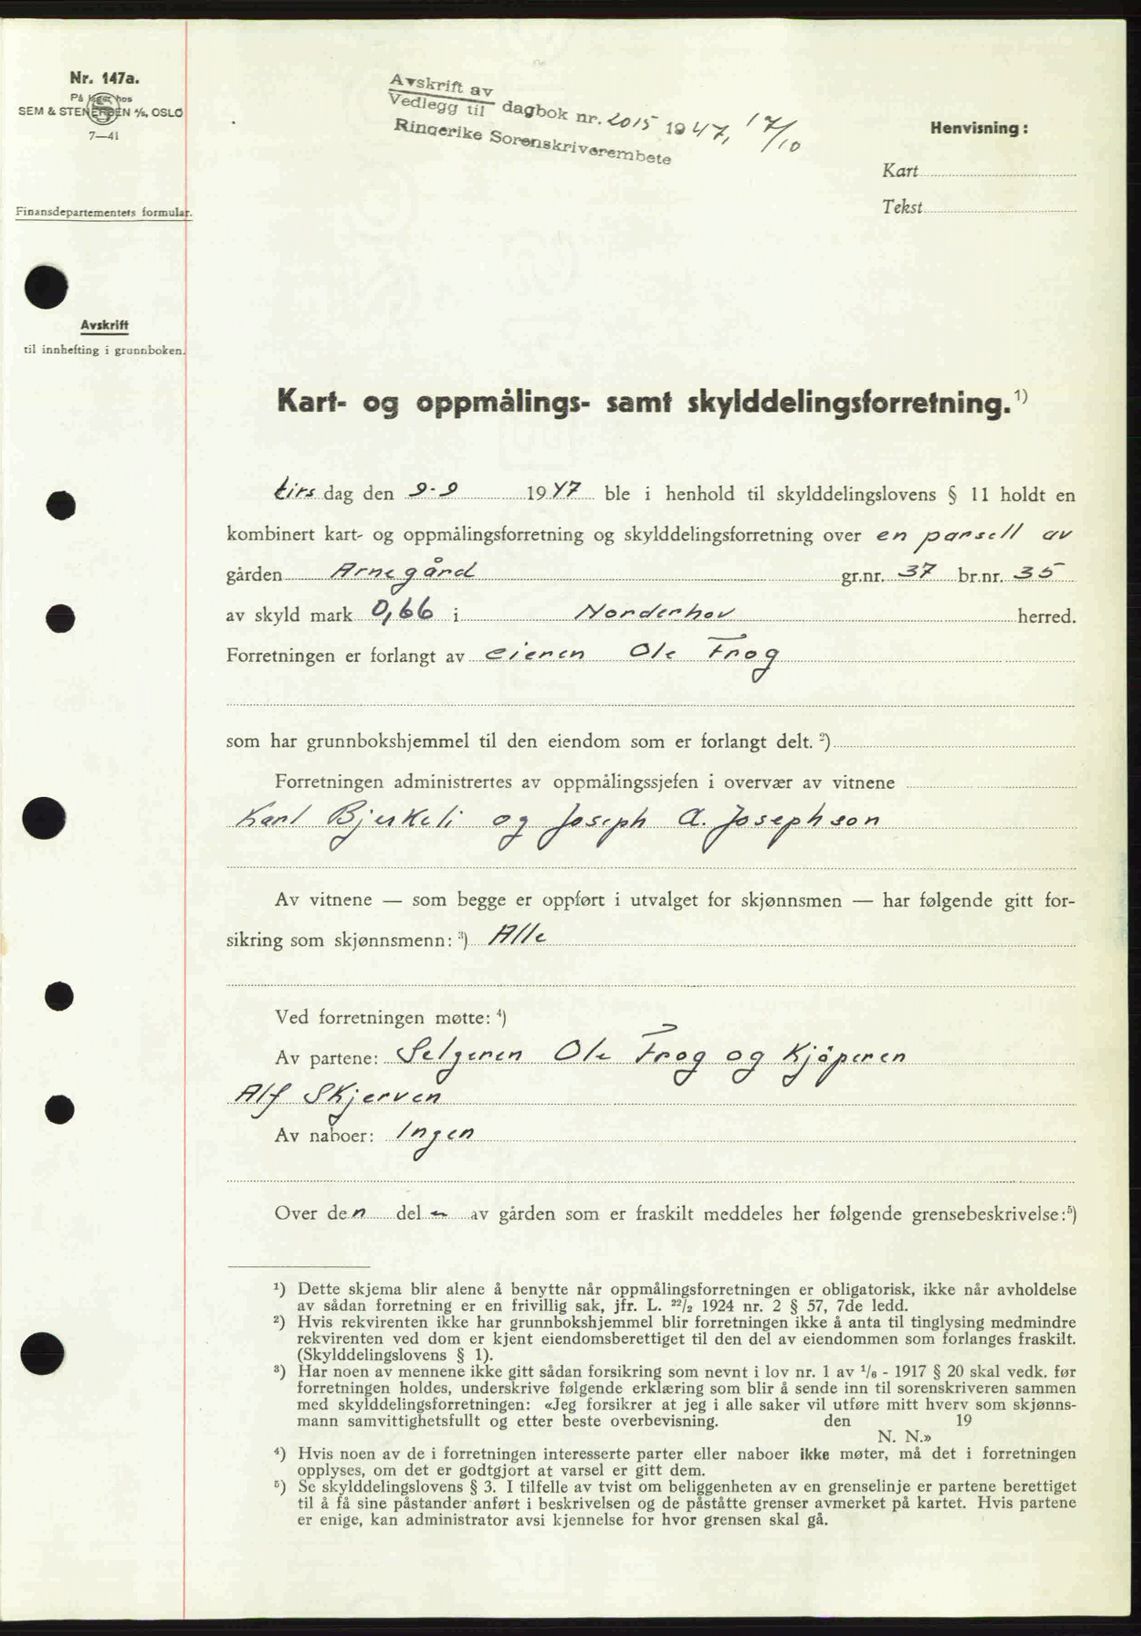 Nr. 147a.
På lager hos
SEM & STENERSEN A/S, OSLO
7—41
Finansdepartementets formular.
Avskrift
til innhefting i grunnboken.
Avskrift av
Vedlegg til dagbok nr. 2015 1947, 17/10
Ringerike Sorenskriverembete
Henvisning:
Kart
Tekst
Kart- og oppmålings- samt skylddelingsforretning.¹)
tirsdag den 9-9 1947 ble i henhold til skylddelingslovens § 11 holdt en
kombinert kart- og oppmålingsforretning og skylddelingsforretning over en parsell av
gården Arnegård gr.nr. 37 br.nr. 35
av skyld mark 0,66 i Norderhov herred.
Forretningen er forlangt av eieren Ole Frog
som har grunnbokshjemmel til den eiendom som er forlangt delt. ²)
Forretningen administrertes av oppmålingssjefen i overvær av vitnene
Karl Bjerkeli og Joseph A. Josephson
Av vitnene — som begge er oppført i utvalget for skjønnsmen — har følgende gitt for-
sikring som skjønnsmenn: ³) Alle
Ved forretningen møtte: ⁴)
Av partene: Selgeren Ole Frog og Kjöperen
Alf Skjerven
Av naboer: Ingen
Over den del - av gården som er fraskilt meddeles her følgende grensebeskrivelse:⁵)
¹) Dette skjema blir alene å benytte når oppmålingsforretningen er obligatorisk, ikke når avholdelse
av sådan forretning er en frivillig sak, jfr. L. 22/2 1924 nr. 2 § 57, 7de ledd.
²) Hvis rekvirenten ikke har grunnbokshjemmel blir forretningen ikke å anta til tinglysing medmindre
rekvirenten ved dom er kjent eiendomsberettiget til den del av eiendommen som forlanges fraskilt.
(Skylddelingslovens § 1).
³) Har noen av mennene ikke gitt sådan forsikring som nevnt i lov nr. 1 av 1/6 - 1917 § 20 skal vedk. før
forretningen holdes, underskrive følgende erklæring som blir å sende inn til sorenskriveren sammen
med skylddelingsforretningen: «Jeg forsikrer at jeg i alle saker vil utføre mitt hverv som skjønns-
mann samvittighetsfullt og etter beste overbevisning. den 19
N. N.»
⁴) Hvis noen av de i forretningen interesserte parter eller naboer ikke møter, må det i forretningen
opplyses, om det er godtgjort at varsel er gitt dem.
⁵) Se skylddelingslovens § 3. I tilfelle av tvist om beliggenheten av en grenselinje er partene berettiget
til å få sine påstander anført i beskrivelsen og de påståtte grenser avmerket på kartet. Hvis partene
er enige, kan administrator avsi kjennelse for hvor grensen skal gå.